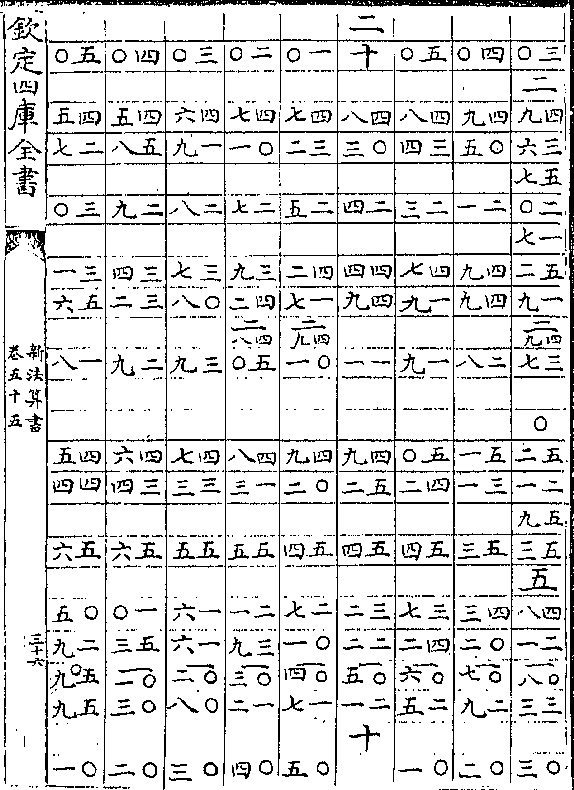 欽定四庫全書
新法算書
卷五十五
三十六
三〇 二 四九 三六 五七 二〇 一七 五二 一九 二 四九 三七 〇 五二 二一 五九 五三 五 四八 二一 〇八 三三 〇三
四〇 四九 〇五 一二 四九 四九 二八 五一 三一 五三 四三 〇二 〇七 二九 〇二
五〇 四八 三四 二三 四七 一九 一九 五〇 四二 五四 三七 四二 〇六 二五 〇一
二十 四八 〇三 二四 四四 四九 一一 四九 五二 五四 三二 二二 〇五 二一 十
一〇 四七 三二 二五 四二 一七 二 四九 〇一 四九 〇二 五四 二七 〇一 〇四 一七 〇五
二〇 四七 〇一 二七 三九 四二 二 四八 五〇 四八 一三 五五 二一 三九 〇三 一二 〇四
三〇 四六 一九 二八 三七 〇八 三九 四七 三三 五五 一六 一六 〇二 〇八 〇三
四〇 四五 五八 二九 三四 三二 二九 四六 三四 五六 一〇 五三 〇一 〇三 〇二
五〇 四五 二七 三〇 三一 五六 一八 四五 四四 五六 〇五 二九 五〇九 五九 〇一